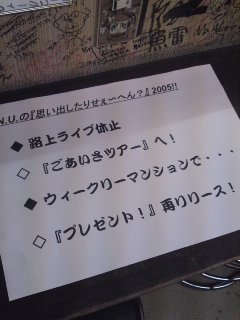 N.U.の『思い出したりせぇーへん?』2005!!
◆ 路上ライブ休止
◇ 『ごあいさツアー』へ!
◆ ウィークリーマンションで・・・
◇ 『プレゼント!』再リリース!
魚雷